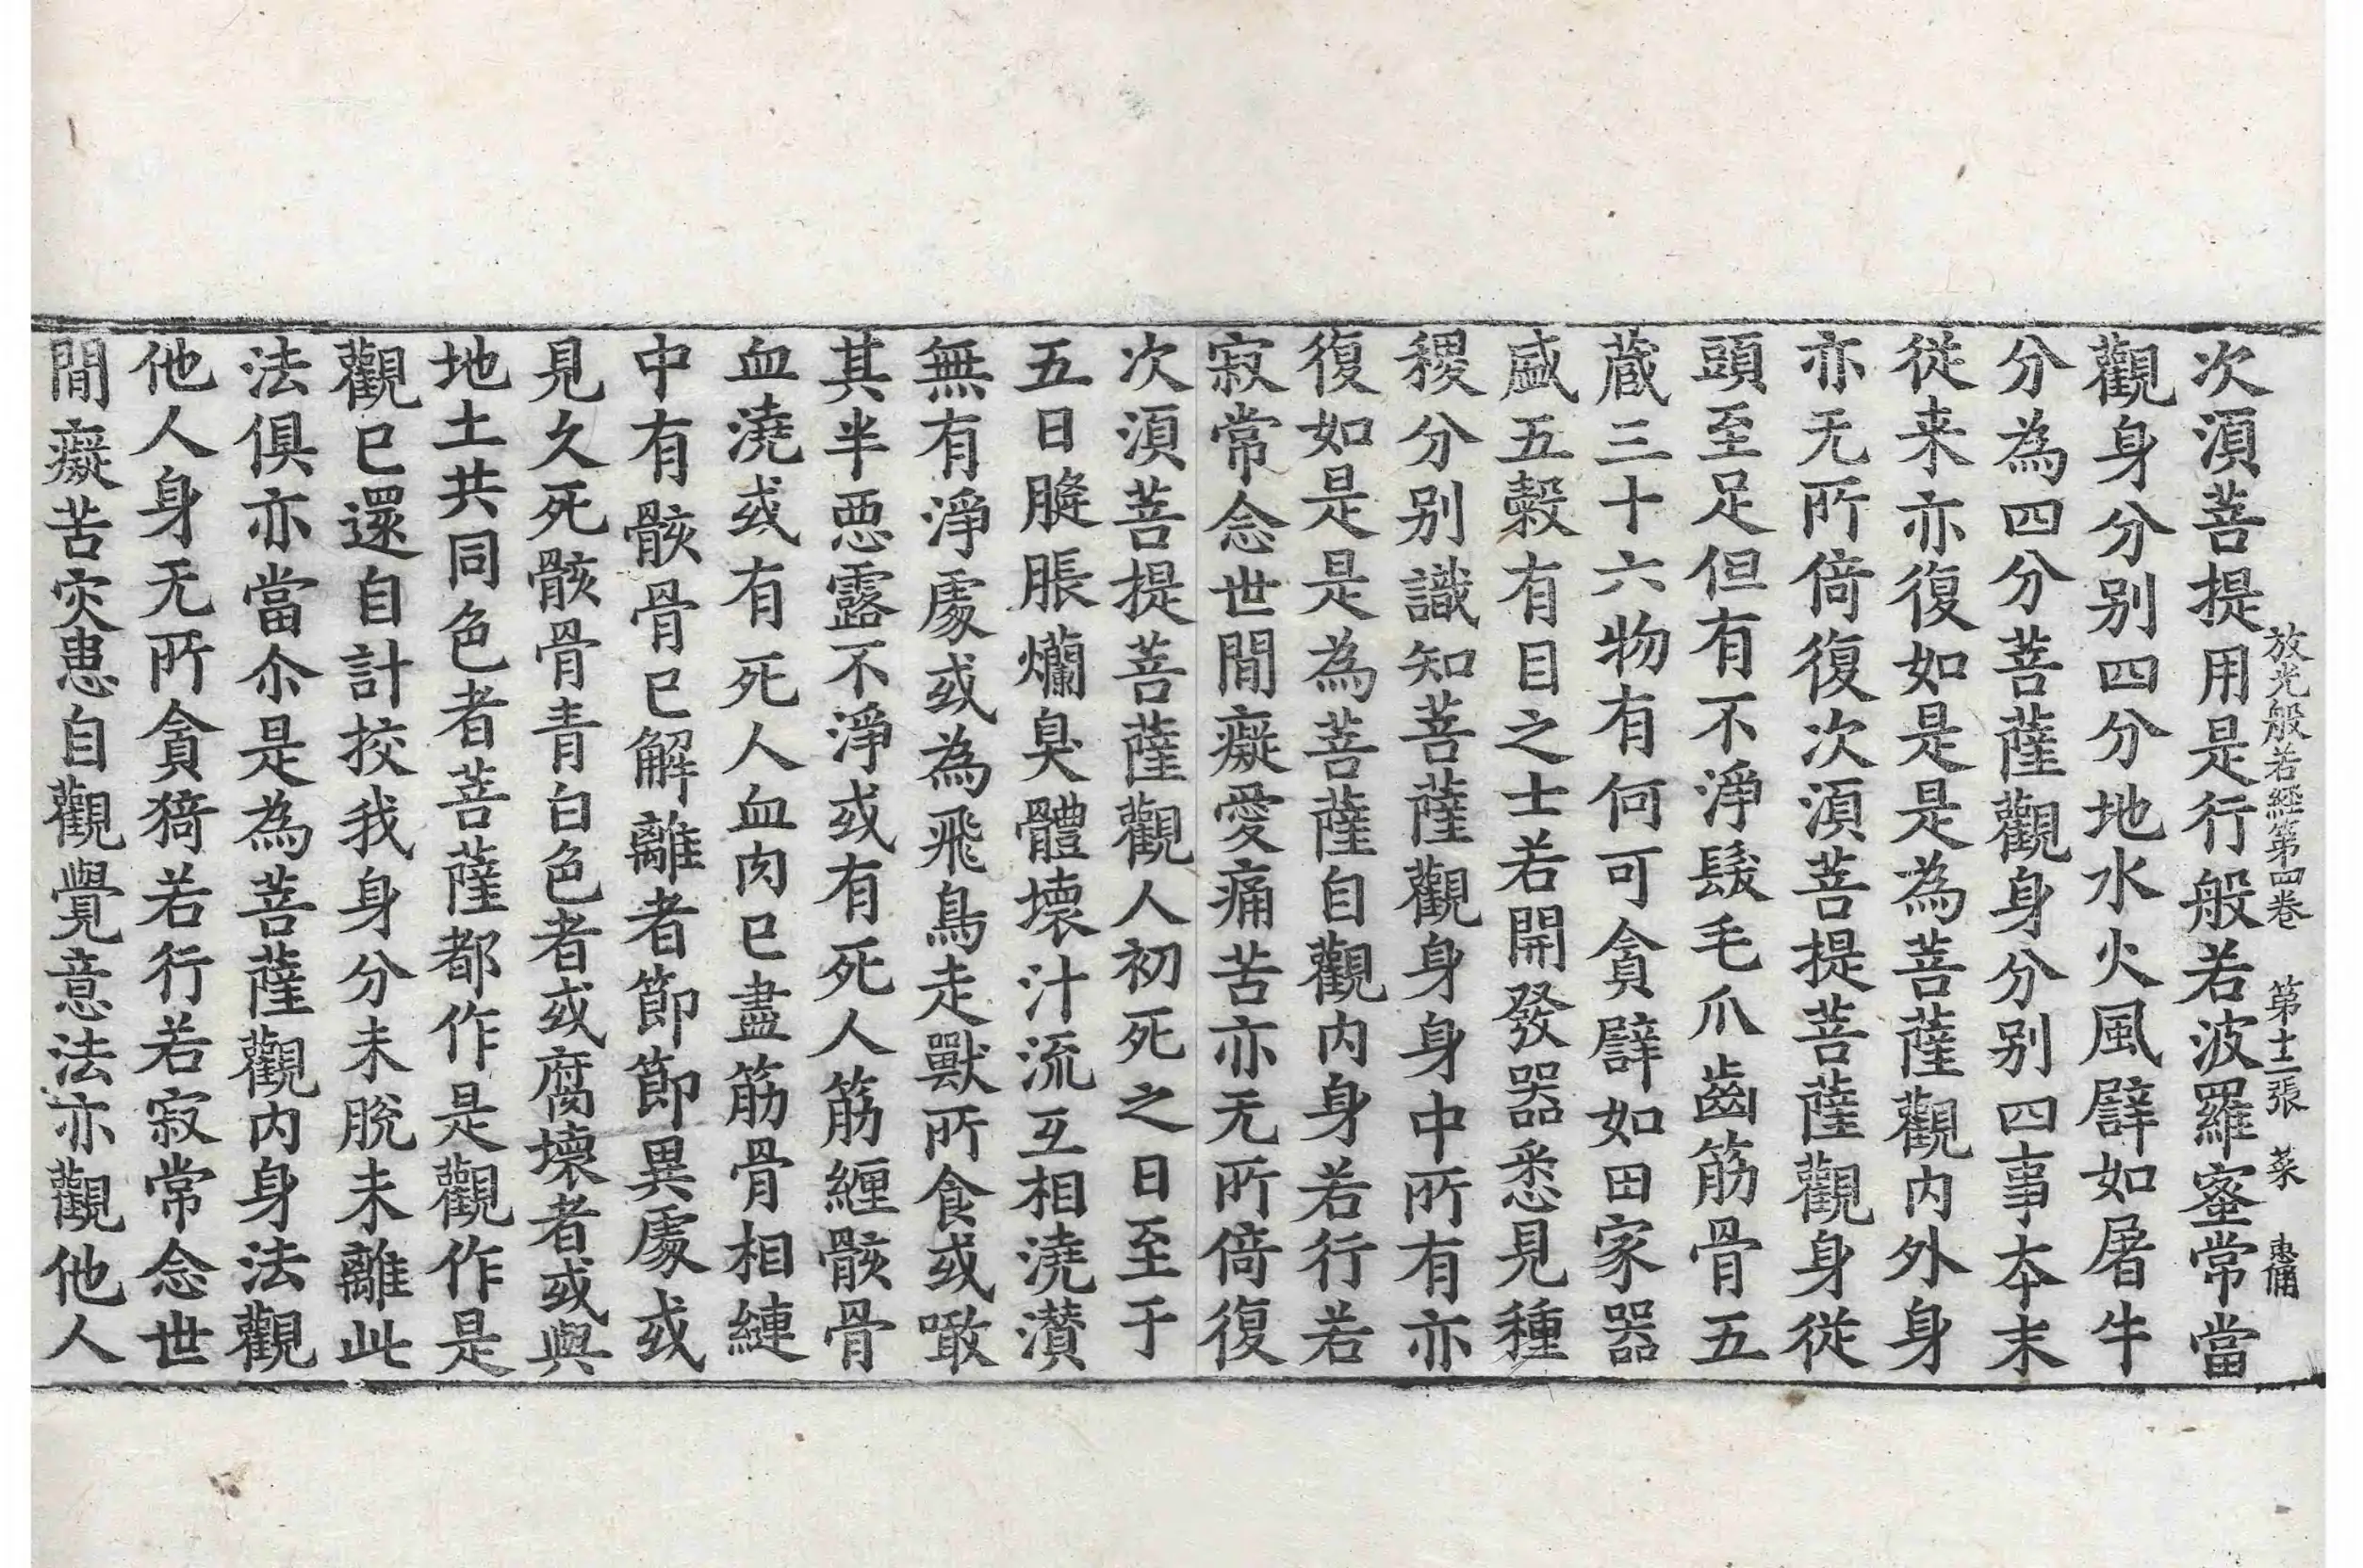 放光般若經第四卷 第十二張 菜 惠俑
次湏菩提用是行般若波羅蜜常當
觀身分别四分地水火風譬如屠牛
分為四分菩薩觀身分别四事夲末
從来亦復如是是為菩薩觀内外身
亦无所倚復次湏菩提菩薩觀身從
頭至足但有不淨髮毛爪齒筋骨五
蔵三十六物有何可貪譬如田家器
盛五穀有目之士若開發器悉見種
稷分别識知菩薩觀身身中所有亦
復如是是為菩薩自觀内身若行若
寂常念世間癡愛痛苦亦无所倚復
次湏菩提菩薩觀人初死之日至于
五日膖脹爛臭體壞汁流互相澆灒
無有淨處或為飛鳥走獸所食或噉
其半惡露不淨或有死人筋纏骸骨
血澆或有死人血肉已盡筋骨相縺
中有骸骨已解離者節節異處或
見久死骸骨青白色者或腐壞者或與
地土共同色者菩薩都作是觀作是
觀已還自計挍我身分未脫未離此
法俱亦當尒是為菩薩觀内身法觀
他人身无所貪猗若行若寂常念世
間癡苦灾患自觀覺意法亦觀他人